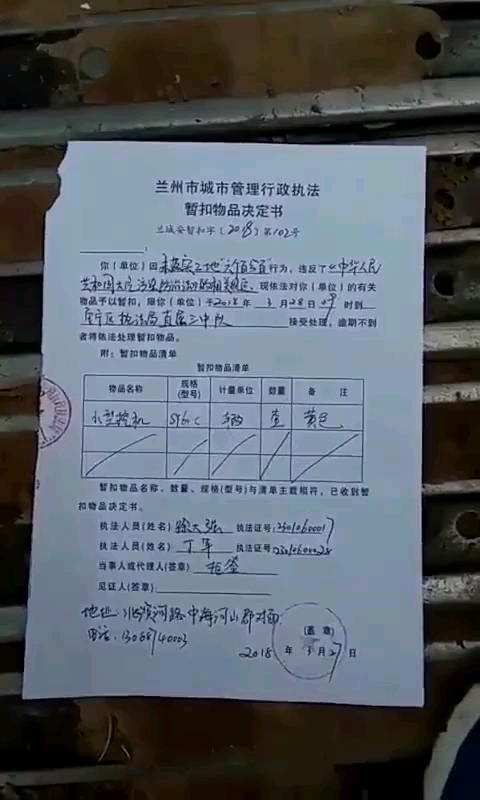 兰州市城市管理行政执法
暂扣物品决定书
兰城安暂扣字〔2018〕第102号
你(单位)因未落实工地"六个百分百"行为,违反了《中华人民
共和国大气污染防治法》的相关规定。现依法对你(单位)的有关
物品予以暂扣,限你(单位)于2018年3月28日09时到
安宁区执法局直属三中队接受处理,逾期不到
者将依法处理暂扣物品。
附:暂扣物品清单
暂扣物品清单
物品名称 规格(型号) 计量单位 数量 备 注
小型挖机 辆 壹 黄色
暂扣物品名称、数量、规格(型号)与清单主载相符,已收到暂
扣物品决定书。
执法人员(姓名) 执法证号:
执法人员(姓名) 丁军 执法证号
当事人或代理人(签章) 拒签
见证人(签章)
地址:北滨河路中海河山郡对面
电话:
(盖 章)
2018年3月27日